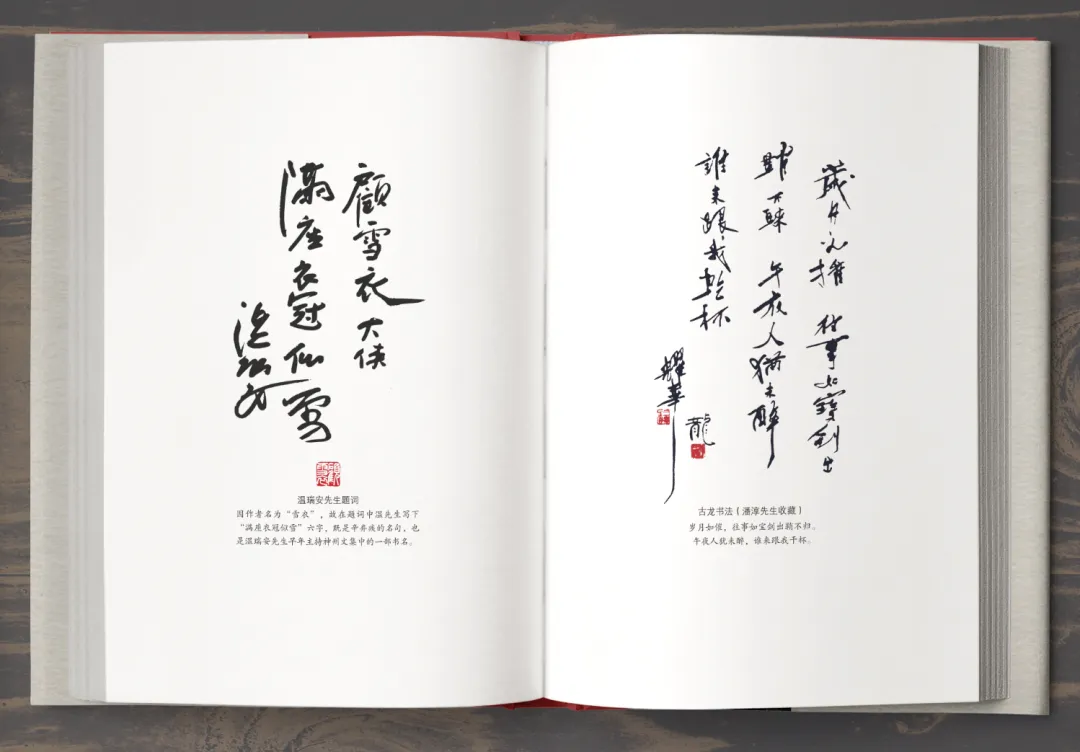 顧雪衣大侠
滿座衣冠似雪
温瑞安
温瑞安先生题词
因作者名为“雪衣”，故在题词中温先生写下
“满座衣冠似雪”六字，既是辛弃疾的名句，也
是温瑞安先生早年主持神州文集中的一部书名。
歲月如 往事如寶劍出
鞘不歸 午夜人猶未醉
誰來跟我乾杯
耀華
龍
古龙书法（潘淳先生收藏）
岁月如催，往事如宝剑出鞘不归。
午夜人犹未醉，谁来跟我干杯。